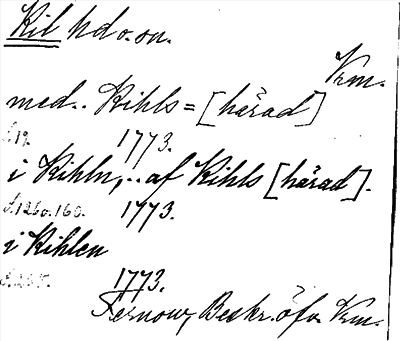 Kil hd o. sn.
Vrm.
med.. Kihls = [härad]
S. 19. 1773.
i Kihln,.. af Kihls [härad].
S. 126 o. 160. 1773.
i Kihlen
1773.
Fernow, Beskr. öfv. Vrm.